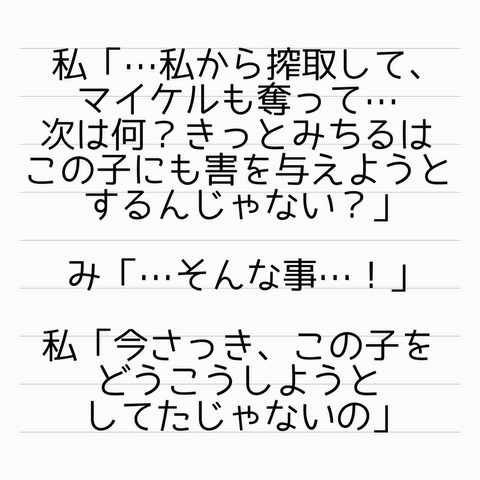 私「…私から搾取して、
マイケルも奪って…
次は何？きっとみちるは
この子にも害を与えようと
するんじゃない？」
み「…そんな事…！」
私「今さっき、この子を
どうこうしようと
してたじゃないの」